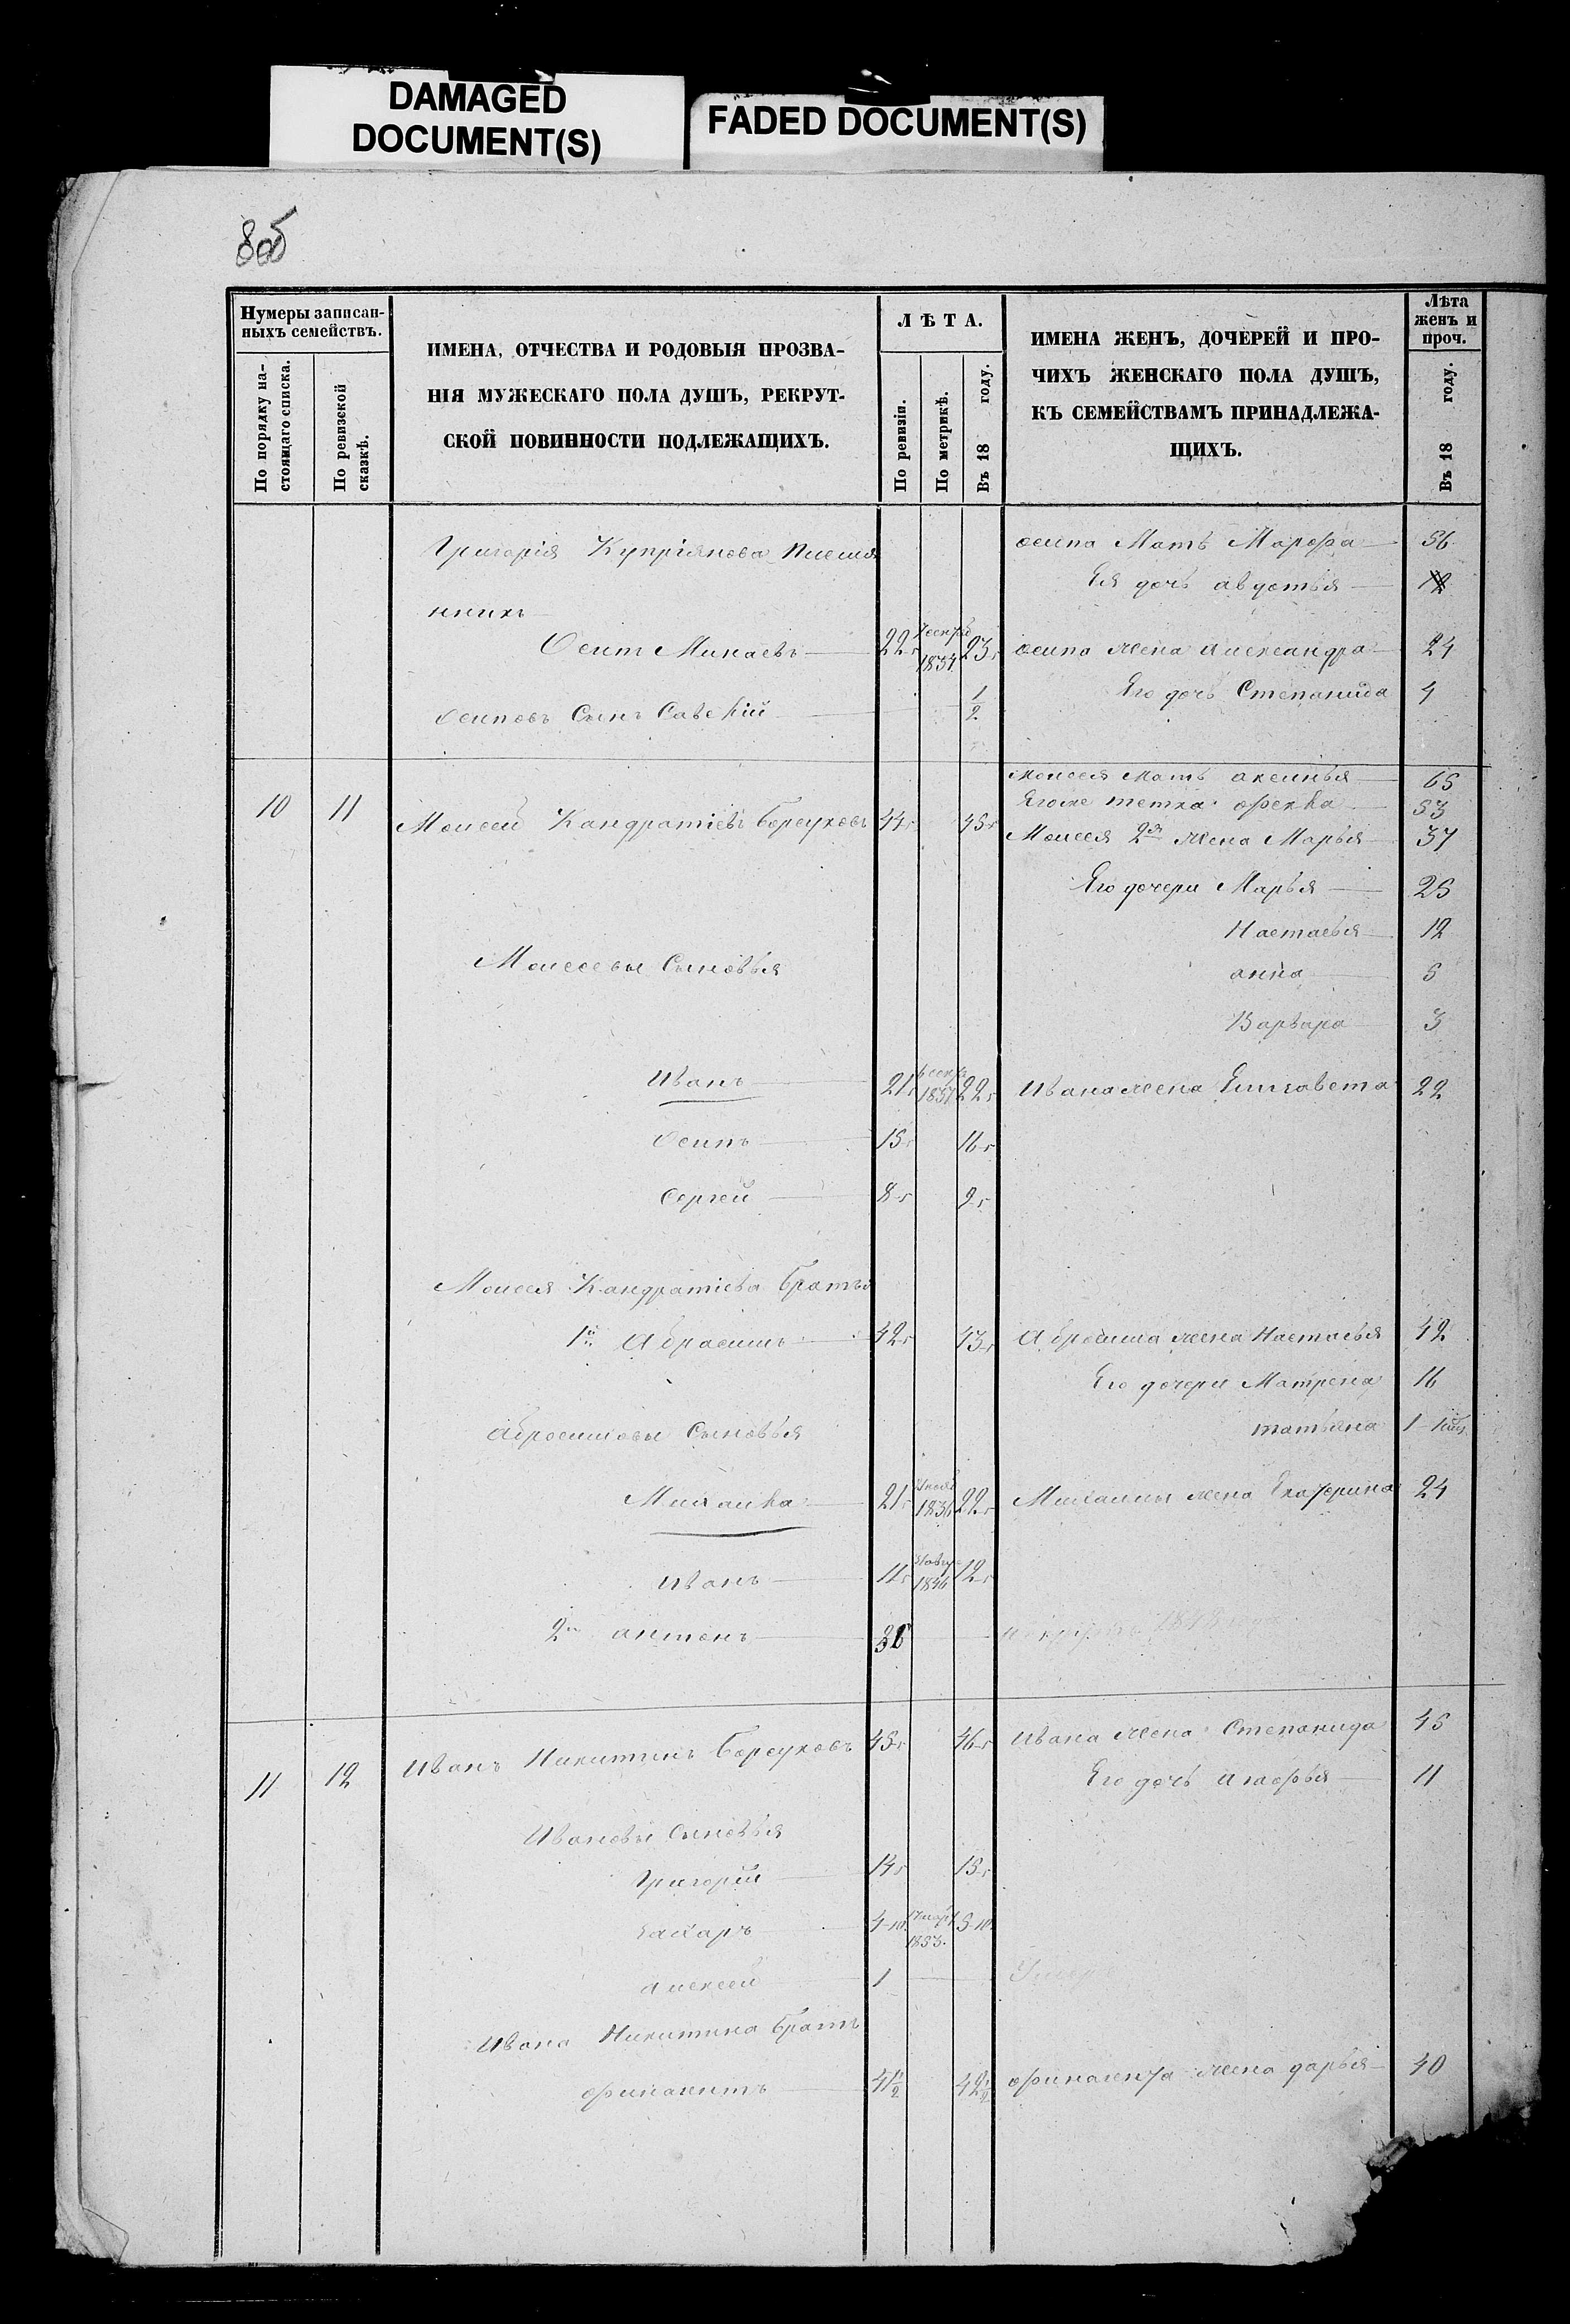 DAMAGED
DOCUMENT(S)
FADED DOCUMENT(S)
8об
Нумеры записан-
ныхъ семействъ.
По порядку на-
стоящаго списка.
По ревизской
сказкѣ.
ИМЕНА, ОТЧЕСТВА И РОДОВЫЯ ПРОЗВА-
НІЯ МУЖЕСКАГО ПОЛА ДУШЪ, РЕКРУТ-
СКОЙ ПОВИННОСТИ ПОДЛЕЖАЩИХЪ.
ЛѢТА.
По ревизіи.
По метрикѣ.
Въ 18 году.
ИМЕНА ЖЕНЪ, ДОЧЕРЕЙ И ПРО-
ЧИХЪ ЖЕНСКАГО ПОЛА ДУШЪ,
КЪ СЕМЕЙСТВАМЪ ПРИНАДЛЕЖА-
ЩИХЪ.
Лѣта
женъ и
проч.
Въ 18 году.
Григорія Купріянова Племя осипа Мать Марфа 56
Ея дочь авдотья 12
нникъ
Осипъ Минаевъ 22 1834 23 осипа жена александра 24
Его дочь Степанида 4
Осиповъ Сынъ Савелій 1/2
Моисея мать аксинья 65
10 11 Моисей Кандратіевъ Борсуковъ 44 45 Егоже тетка фекла 53
Моисея 2я жена Марья 37
Его дочери Марья 25
Настасья 12
Моисеевы Сыновья анна 5
Варвара 3
Иванъ 21 1837 22 Ивана жена Елизавета 22
Осипъ 15 16
Сергей 8 9
Моисея Кандратіева братья
1й Абрасимъ 42 43 Абросима жена Настасья 42
Его дочери Матрена 16
Абросимовы Сыновья татьяна 1
Михаила 21 1836 22 Михаилы жена Екатерина 24
Иванъ 11 1846 12
2й антонъ 36 1848
11 12 Иванъ Никитинъ Борсуковъ 45 46 Ивана жена Степанида 45
Его дочь агафья 11
Ивановы Сыновья
Григорий 14 15
Захаръ 4-10 17 март 1853. 5-10
алексей 1
Ивана Никитина братъ
финагентъ 41 1/2 42 1/2 финагента жена дарья 40